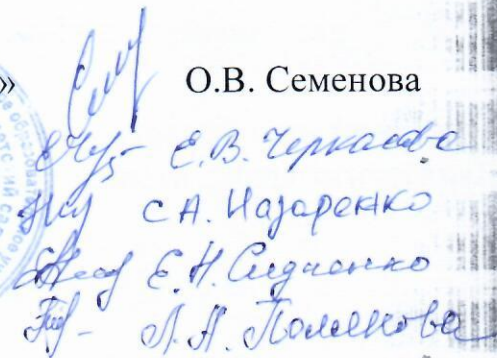 »
О.В. Семенова
Е.В. Черкасова
С.А. Назаренко
Е.Н. Сидненко
Л.А. Полякова